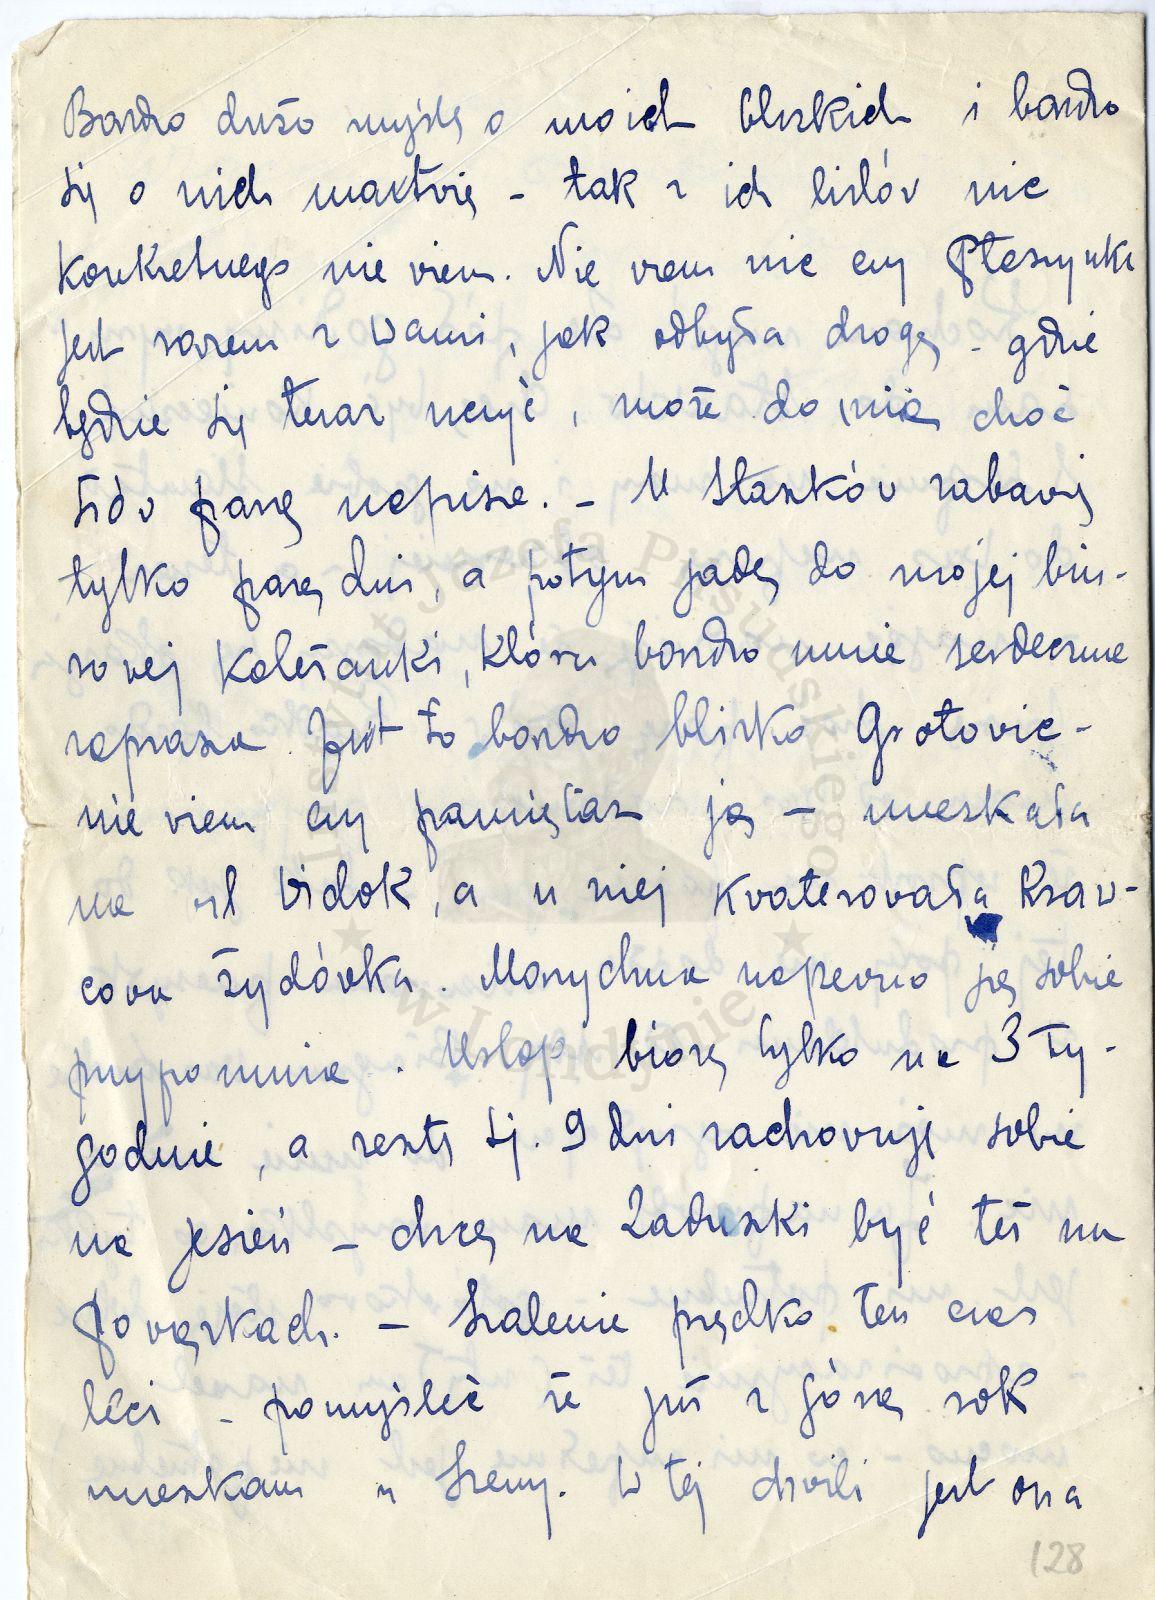 Bardzo dużo myślę o moich bliskich i bardzo
się o nich martvię - tak z ich listóv nic
konkretnego nie viem. Nie viem nic czy Ptaszynka
jest razem z Wami, jak odbyła drogę - gdzie
będzie się teraz uczyć, może do mię choć
słóv parę napisze. - U Staszkóv zabavię
tylko parę dni, a potym jadę do mojej biu-
rovej koleżanki, która bardzo mnie serdecznie
zaprasza. Jest to bardzo blisko Grotovic -
nie viem czy pamiętasz ją - mieszkała
na ul Vidok, a u niej kvaterovała krav-
cova żydóvka. Marychna napevno ją sobie
przypomina. Urlop biorę tylko na 3 ty-
godnie, a resztę tj. 9 dni zachovuję sobie
na jesień - chcę na Zaduszki być też na
Povązkach. - Szalenie prędko ten czas
leci - pomyśleć że już z górą rok
mieszkam u Ireny. W tej chvili jest ona
128
Instytut Józefa Piłsudskiego
★ w Londynie ★